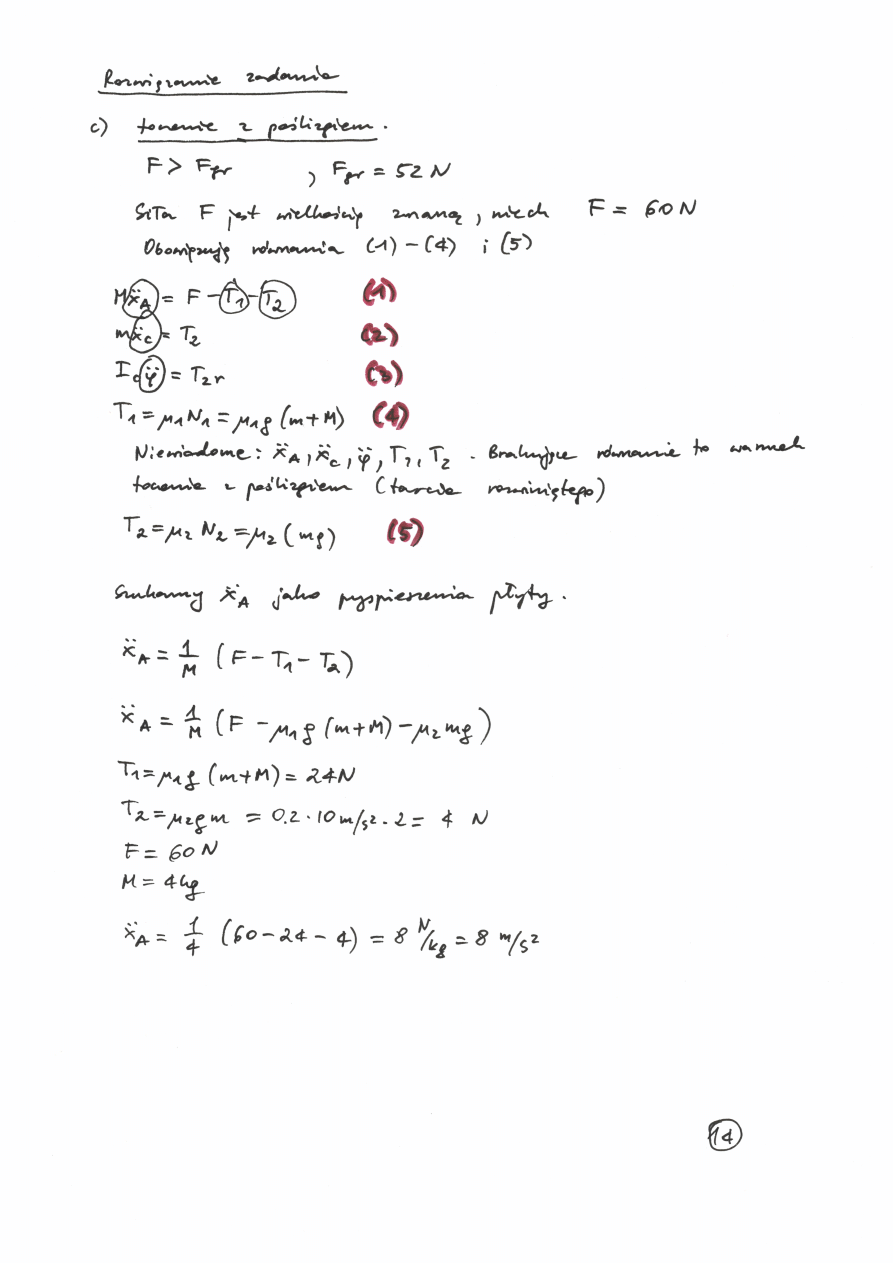 Rozwiązanie zadania
c) toczenie z poślizgiem.
F > Fgr , Fgr = 52 N
Siła F jest wielkością znaną, niech F = 60 N
Obowiązują równania (1) - (4) i (5)
Mẍ_A = F - T₁ - T₂ (1)
mẍ_c = T₂ (2)
I_c φ̈ = T₂r (3)
T₁ = μ₁N₁ = μ₁g (m+M) (4)
Niewiadome: ẍ_A, ẍ_c, φ̈, T₁, T₂. Brakujące równanie to warunek
toczenia z poślizgiem (tarcie rozwiniętego)
T₂ = μ₂ N₂ = μ₂ (mg) (5)
Szukamy ẍ_A jako przyspieszenia płyty.
ẍ_A = 1/M (F - T₁ - T₂)
ẍ_A = 1/M (F - μ₁g (m+M) - μ₂mg)
T₁ = μ₁g (m+M) = 24N
T₂ = μ₂gm = 0.2 · 10 m/s² · 2 = 4 N
F = 60 N
M = 4kg
ẍ_A = 1/4 (60 - 24 - 4) = 8 N/kg = 8 m/s²
14